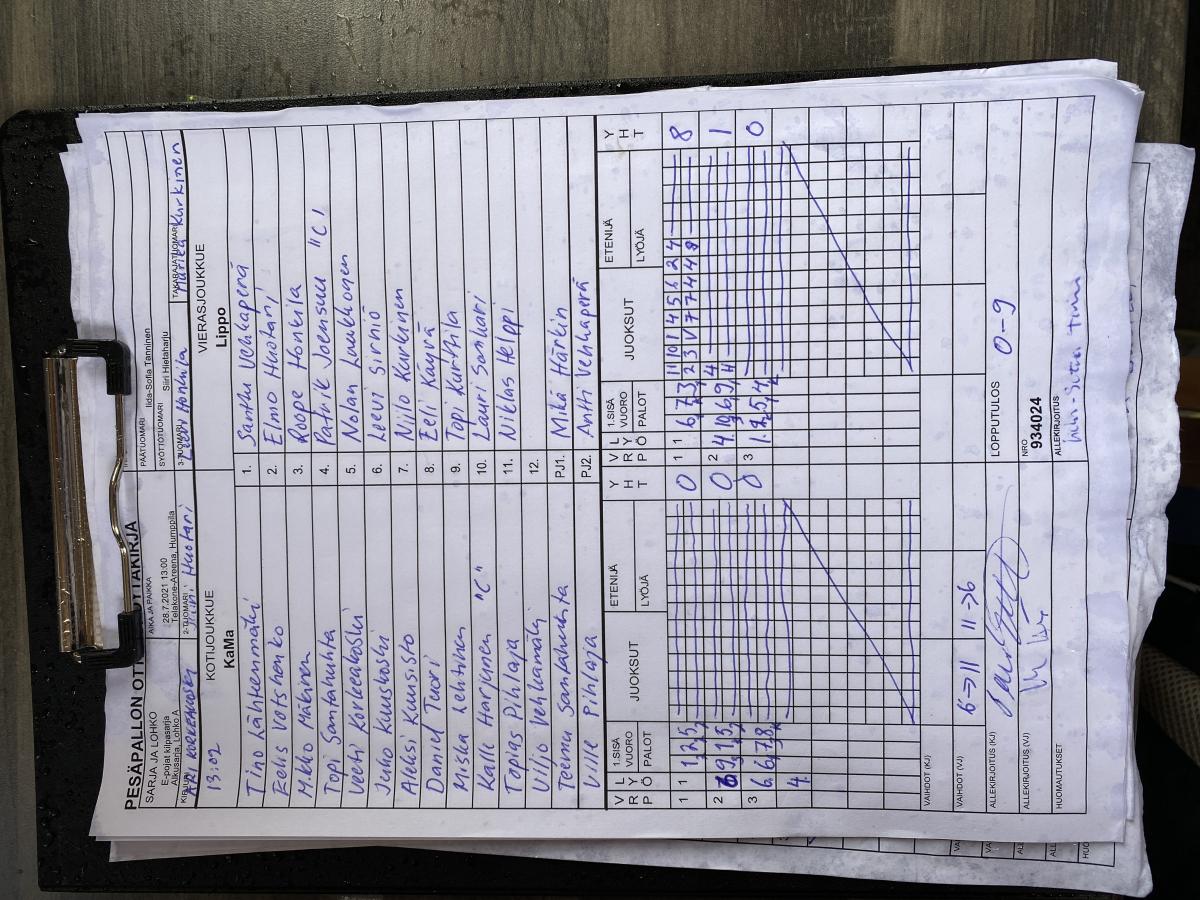 PESÄPALLON OTTELUPÖYTÄKIRJA
SARJA JA LOHKO
E-pojat kilpasarja
Alkusarja, Lohko A
AIKA JA PAIKKA
28.7.2021 13:00
Telakone-Areena, Humppila
PÄÄTUOMARI Iida-Sofia Tanninen
SYÖTTÖTUOMARI Siiri Hietaharju
KIRJURI
2-TUOMARI Huotari
3-TUOMARI Honkila
TAKARAJATUOMARI Kurkinen
13.02
KOTIJOUKKUE
KaMa
VIERASJOUKKUE
Lippo
Tino Lähteenmäki 1. Santtu Vehkaperä
Eelis Votshenko 2. Elmo Huotari
Mikko Mäkinen 3. Roope Honkila
Topi Santahuhta 4. Patrik Joensuu "C"
Veeti Korkeakoski 5. Nolan Laukkonen
Juho Kuuskoski 6. Leevi Sirniö
Aleksi Kuusisto 7. Niilo Kurkinen
Daniel Tuori 8. Eeli Käyrä
Miska Lehtinen 9. Topi Karttila
Kalle Harjunen "C" 10. Lauri Saahari
Topias Pihlaja 11. Niklas Helppi
Viljo Vehkamäki 12.
Teemu Santahuhta PJ1. Mika Härkin
Ville Pihlaja PJ2. Antti Vehkaperä
V R P L Y Ö 1.SISÄ VUORO PALOT JUOKSUT ETENIJÄ LYÖJÄ Y H T V R P L Y Ö 1.SISÄ VUORO PALOT JUOKSUT ETENIJÄ LYÖJÄ Y H T
1 1 1, 2, 5, 0 1 1 6, 7, 3, 11 10 1 4 5 6 2 7 8
2 3 V 7 7 4 4 8
2 6 9, 1, 5, 0 2 4. 10, 6, 9, 4 1
11
3 6. 6, 7, 8, 0 3 1. 2, 5, 4, 0
4.
VAIHDOT (KJ)
VAIHDOT (VJ) 6->11 11->6
ALLEKIRJOITUS (KJ)
LOPPUTULOS 0-9
ALLEKIRJOITUS (VJ)
NRO
934024
HUOMAUTUKSET
ALLEKIRJOITUS